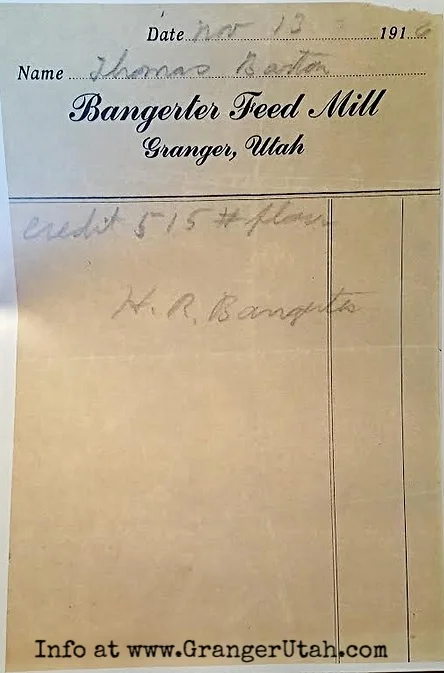 Date Nov 13 1916
Name Thomas Barton
Bangerter Feed Mill
Granger, Utah
credit 515 # flour
H. R. Bangerter
Info at www.GrangerUtah.com